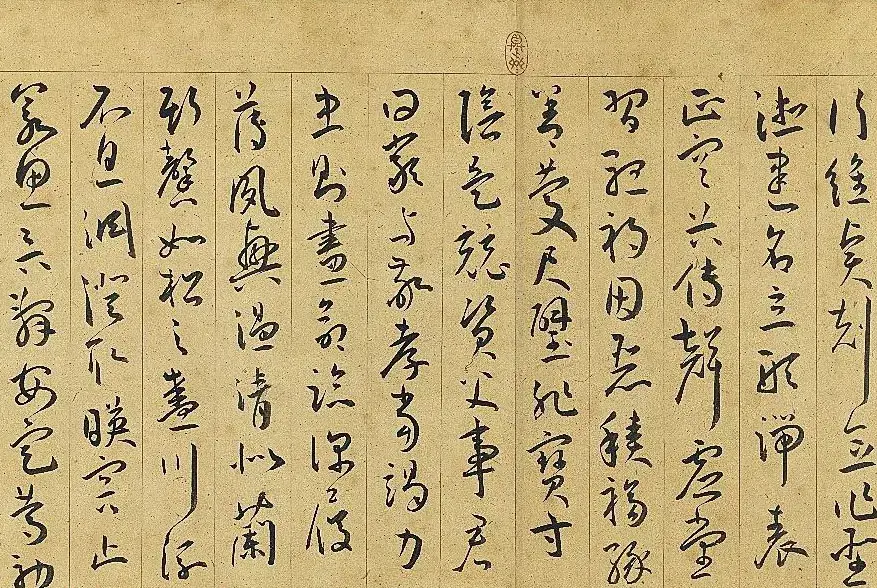 行維賢剋念作聖
德建名立形端表
正空谷傳聲虛堂
習聽禍因惡積福緣
善慶尺璧非寶寸
陰是競資父事君
曰嚴與敬孝當竭力
忠則盡命臨深履
薄夙興溫清似蘭
斯馨如松之盛川流
不息淵澄取暎容止
若思言辭安定篤初